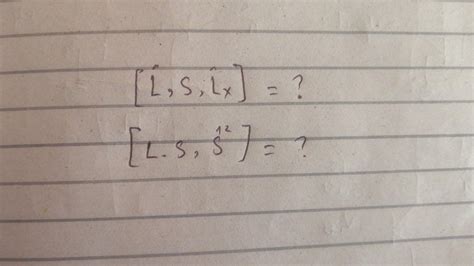 [L̂, S, L̂x] = ?
[L. S, Ŝ²] = ?